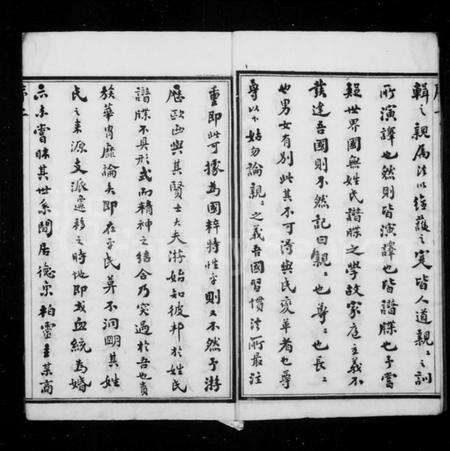 輯之親屬法以維護之寔皆人道親〻之訓
所演譯也然則皆演譯也皆譜牒也予嘗
疑世界國無姓氏譜牒之學故家庭主義不
發達吾國則不然記曰親〻也尊〻也長〻
也男女有別此其不可得與民變革者也尊
尊以下姑勿論親〻之義吾國習慣法所最注
重即此可據為國粹特性乎則又不然予游
歷歐西與其賢士大夫游始知彼邦於姓氏
譜牒不具形式而精神之結合乃突過於吾也貴
族華胄靡論矣即在平民莫不洞明其姓
氏之來源支派遷移之時地即或血統為婚
亦未嘗昧其世系閒居德京柏靈主某商